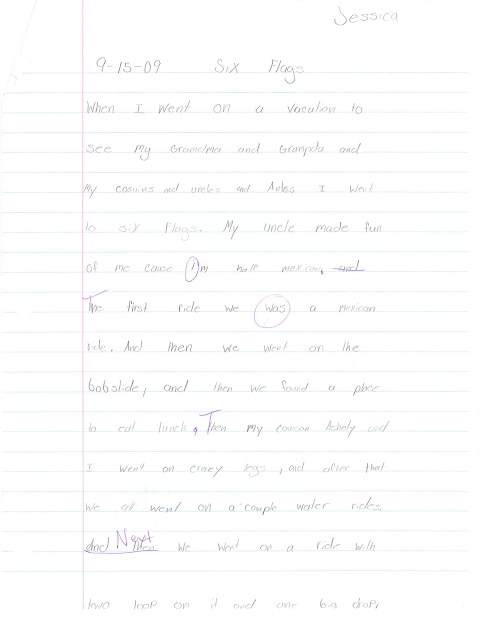 Jessica
9-15-09 Six Flags
When I went on a vacation to
see my Grandma and Granpda and
My cosuins and uncles and Antes I went
to six Flags. My uncle made fun
of me cause I'm half mexican, and
The first ride we was a mexican
ride. And then we went on the
bobslide, and then we found a place
to eat lunch. Then my cousan Ashely and
I went on crazy legs, and after that
we all went on a couple water rides.
And Next then we went on a ride with
two loop on it and one big drop,